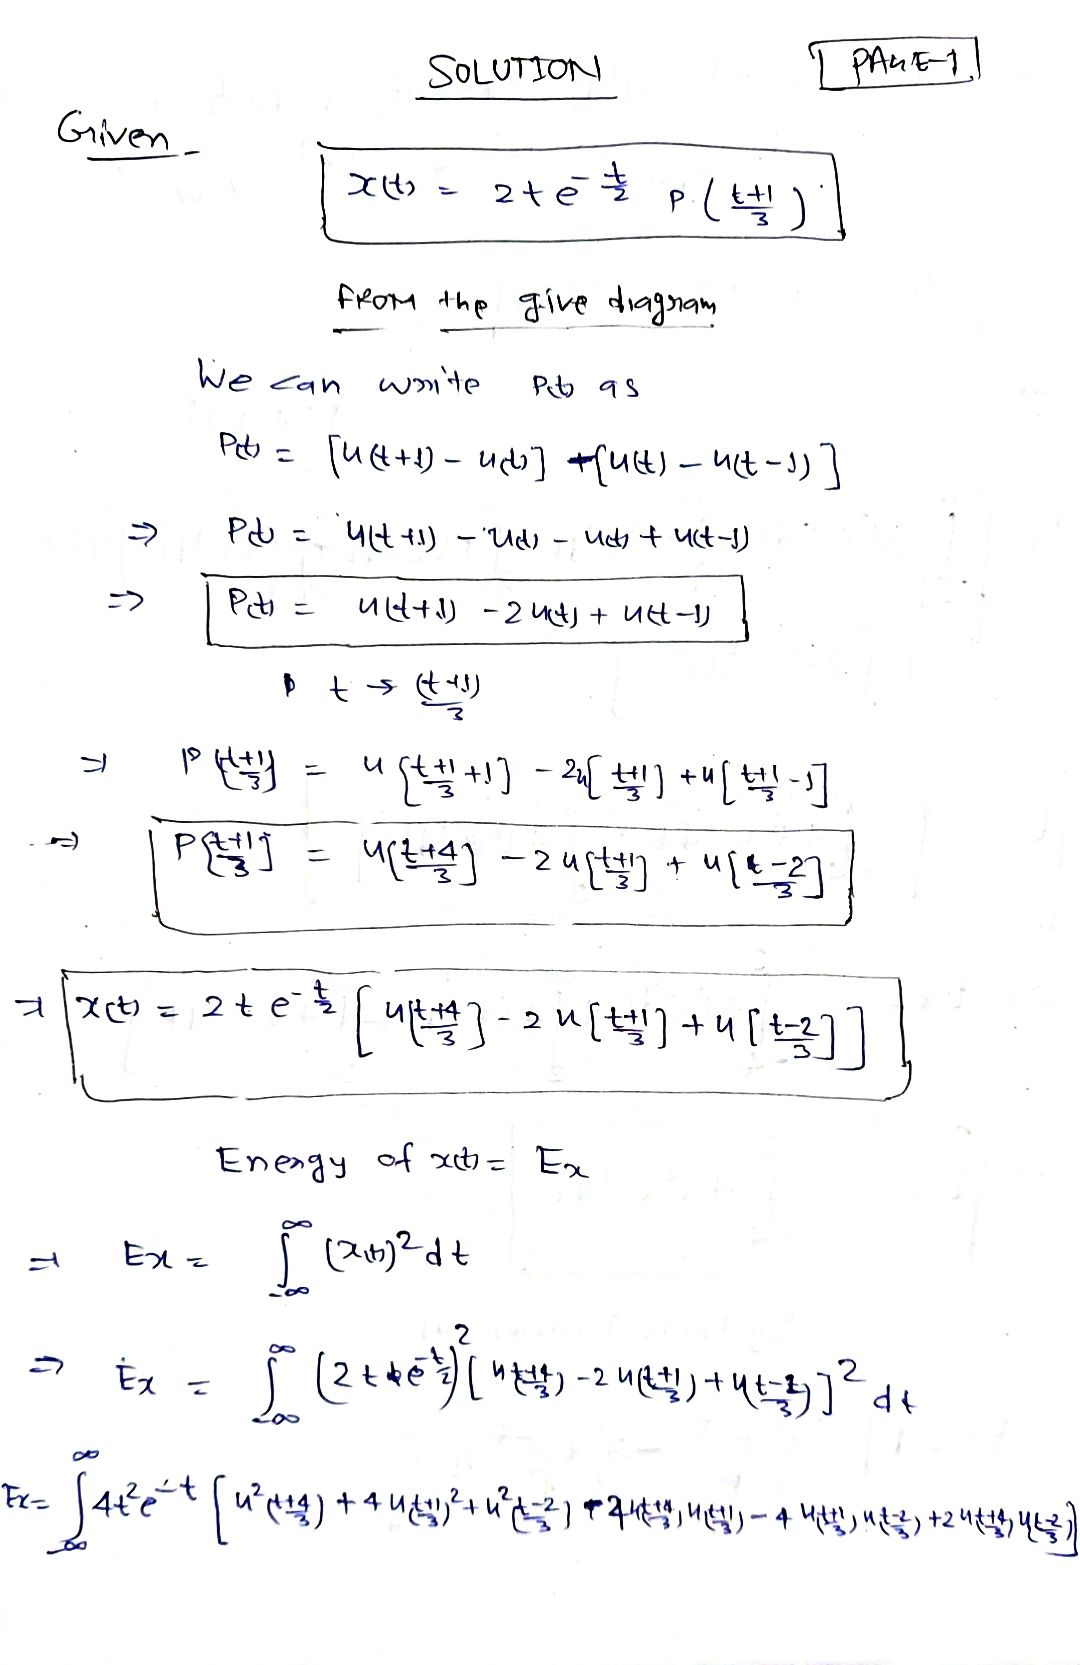 SOLUTION
PAGE-1
Given -
x(t) = 2t e^{-t/2} P((t+1)/3)
FROM the give diagram
We can write P(t) as
P(t) = [u(t+1) - u(t)] +[u(t) - u(t-1)]
⇒ P(t) = u(t+1) - u(t) - u(t) + u(t-1)
⇒ P(t) = u(t+1) - 2u(t) + u(t-1)
t → (t+1)/3
⇒ P{(t+1)/3} = u{(t+1)/3 +1] - 2u[(t+1)/3] + u[(t+1)/3 -1]
⇒ P{(t+1)/3] = u[(t+4)/3] - 2u[(t+1)/3] + u[(t-2)/3]
⇒ x(t) = 2t e^{-t/2} [u[(t+4)/3] - 2u[(t+1)/3] + u[(t-2)/3]]
Energy of x(t) = Ex
⇒ Ex = ∫_{-∞}^{∞} (x(t))^2 dt
⇒ Ex = ∫_{-∞}^{∞} (2t e^{-t/2})^2 [u((t+4)/3) - 2u((t+1)/3) + u((t-2)/3)]^2 dt
Ex = ∫_{-∞}^{∞} 4t^2 e^{-t} [u^2((t+4)/3) + 4u((t+1)/3)^2 + u^2((t-2)/3) u((t+4)/3) u((t+1)/3) - 4u((t+1)/3) u((t-2)/3) + 2u((t+4)/3) u((t-2)/3)]